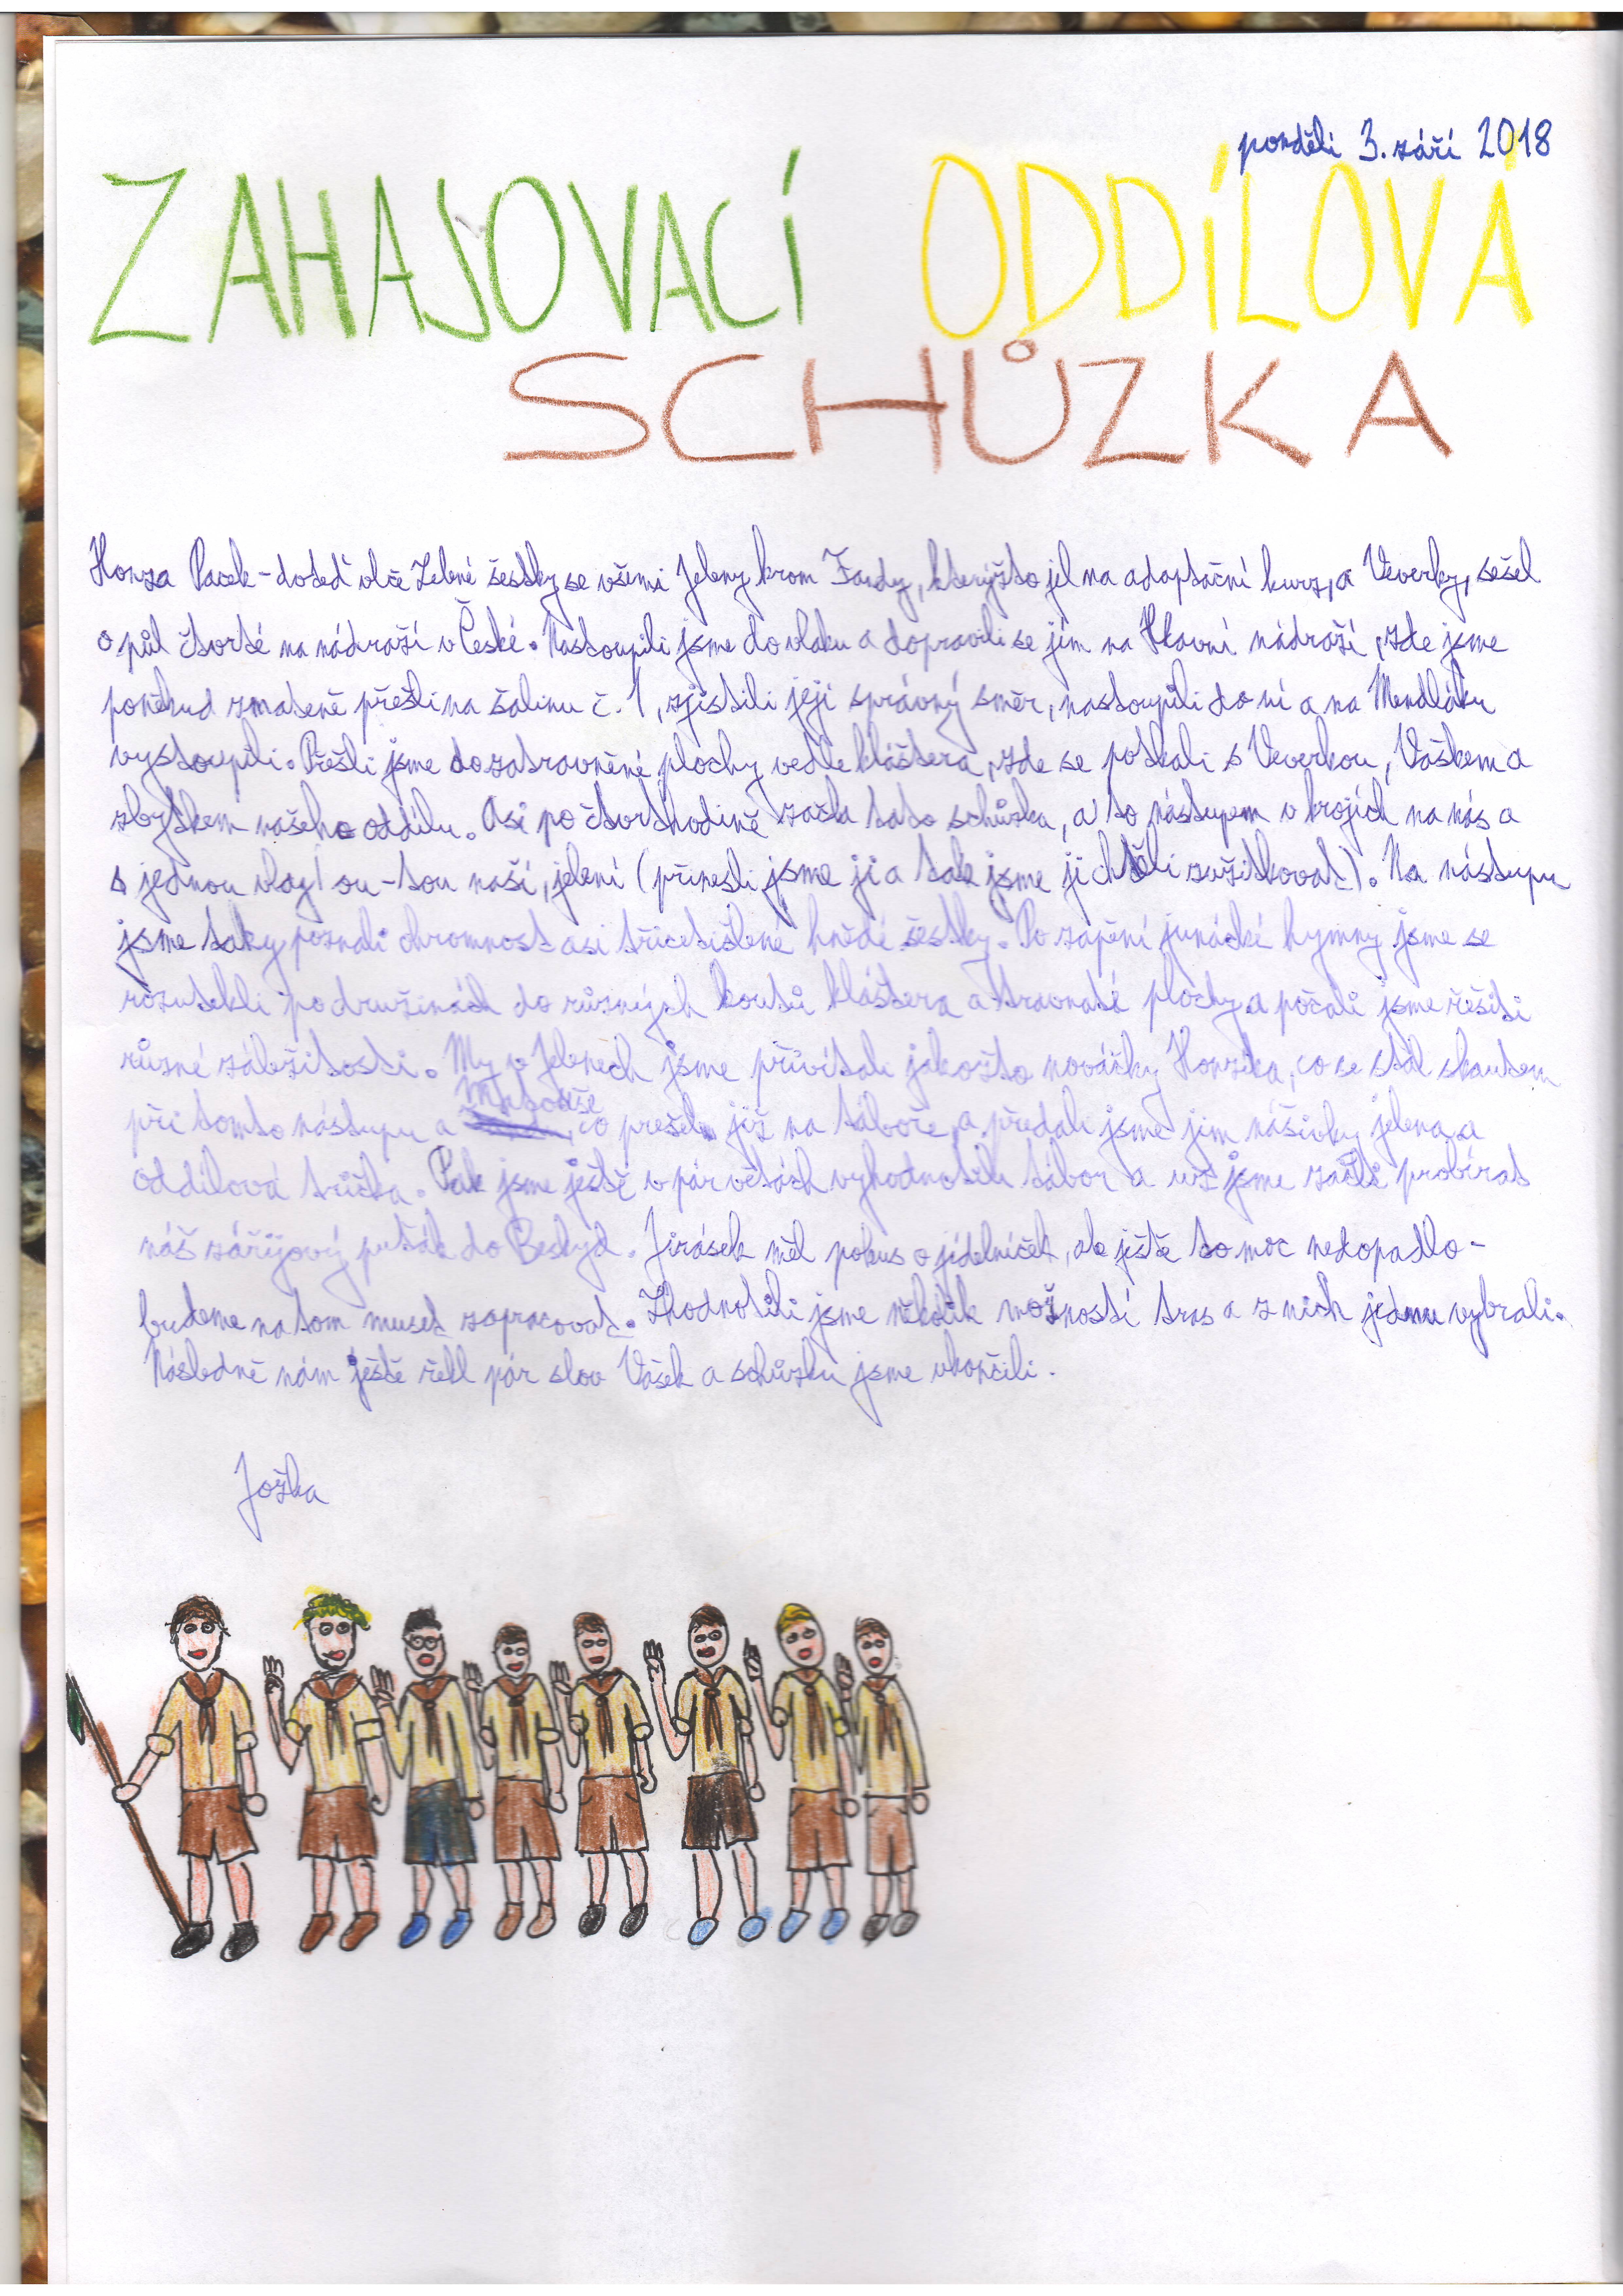 pondělí 3. září 2018
ZAHAJOVACÍ ODDÍLOVÁ
SCHŮZKA
Honza Pacek - doteď vlče Zelené šestky se všemi Jeleny krom Fandy, kterýžto jel na adaptační kurz, a Veverky, sešel
o půl čtvrté na nádraží v České. Nastoupili jsme do vlaku a dopravili se jím na Hlavní nádraží, zde jsme
poněkud zmateně přešli na šalinu č. 1, zjistili její správný směr, nastoupili do ní a na Mendláku
vystoupili. Přešli jsme do zatravněné plochy vedle kláštera, zde se potkali s Veverkou, Vaškem a
zbytkem našeho oddílu. Asi po čtvrthodině začla tato schůzka, a to nástupem v krojích na nás a
s jednou vlajkou - tou naší, jelení (přinesli jsme ji a tak jsme ji chtěli zužitkovat). Na nástupu
jsme taky poznali ohromnost asi třicetičlené hnědé šestky. Po zapění junácké hymny jsme se
rozutekli po družinách do různých koutů kláštera a travnaté plochy a počali jsme řešiti
různé záležitosti. My v Jelenech jsme přivítali jakožto nováčky Honzíka, co se stal skautem
při tomto nástupu a Matouše, co přešel již na táboře, a předali jsme jim nášivky jelena a
oddílová trička. Pak jsme ještě v pár větách vyhodnotili tábor a už jsme začli probírat
náš zářijový puťák do Beskyd. Jirásek měl pokus o jídelníček, ale ještě to moc nedopadlo -
budeme na tom muset zapracovat. Zhodnotili jsme několik možností tras a z nich jednu vybrali.
Následně nám ještě řekl pár slov Vašek a schůzku jsme ukončili.
Jožka